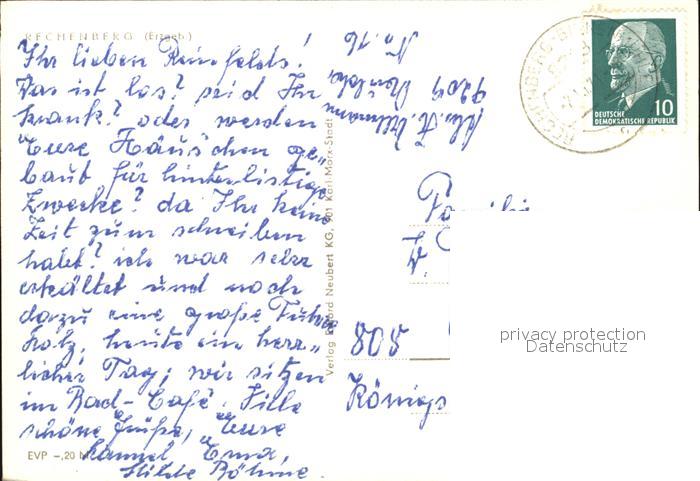 RECHENBERG (Erzgeb.)
Ihr lieben Reinfelds!
Was ist los? seid Ihr
krank? oder werden
Eure Häuschen ge-
baut für hinterlistige
Zwecke? da Ihr keine
Zeit zum schreiben
habt? ich war sehr
erkältet und noch
dazu eine große Fuhre
Holz, heute ein herr-
licher Tag; wir sitzen
im Bad-Café. Viele
schöne Grüße, Eure
Erna,
Hilde Böhme.
EVP -,20 M
Verlag Erhard Neubert KG, 901 Karl-Marx-Stadt
No. 16
DEUTSCHE
DEMOKRATISCHE REPUBLIK
10
Familie
808
Königs
privacy protection
Datenschutz